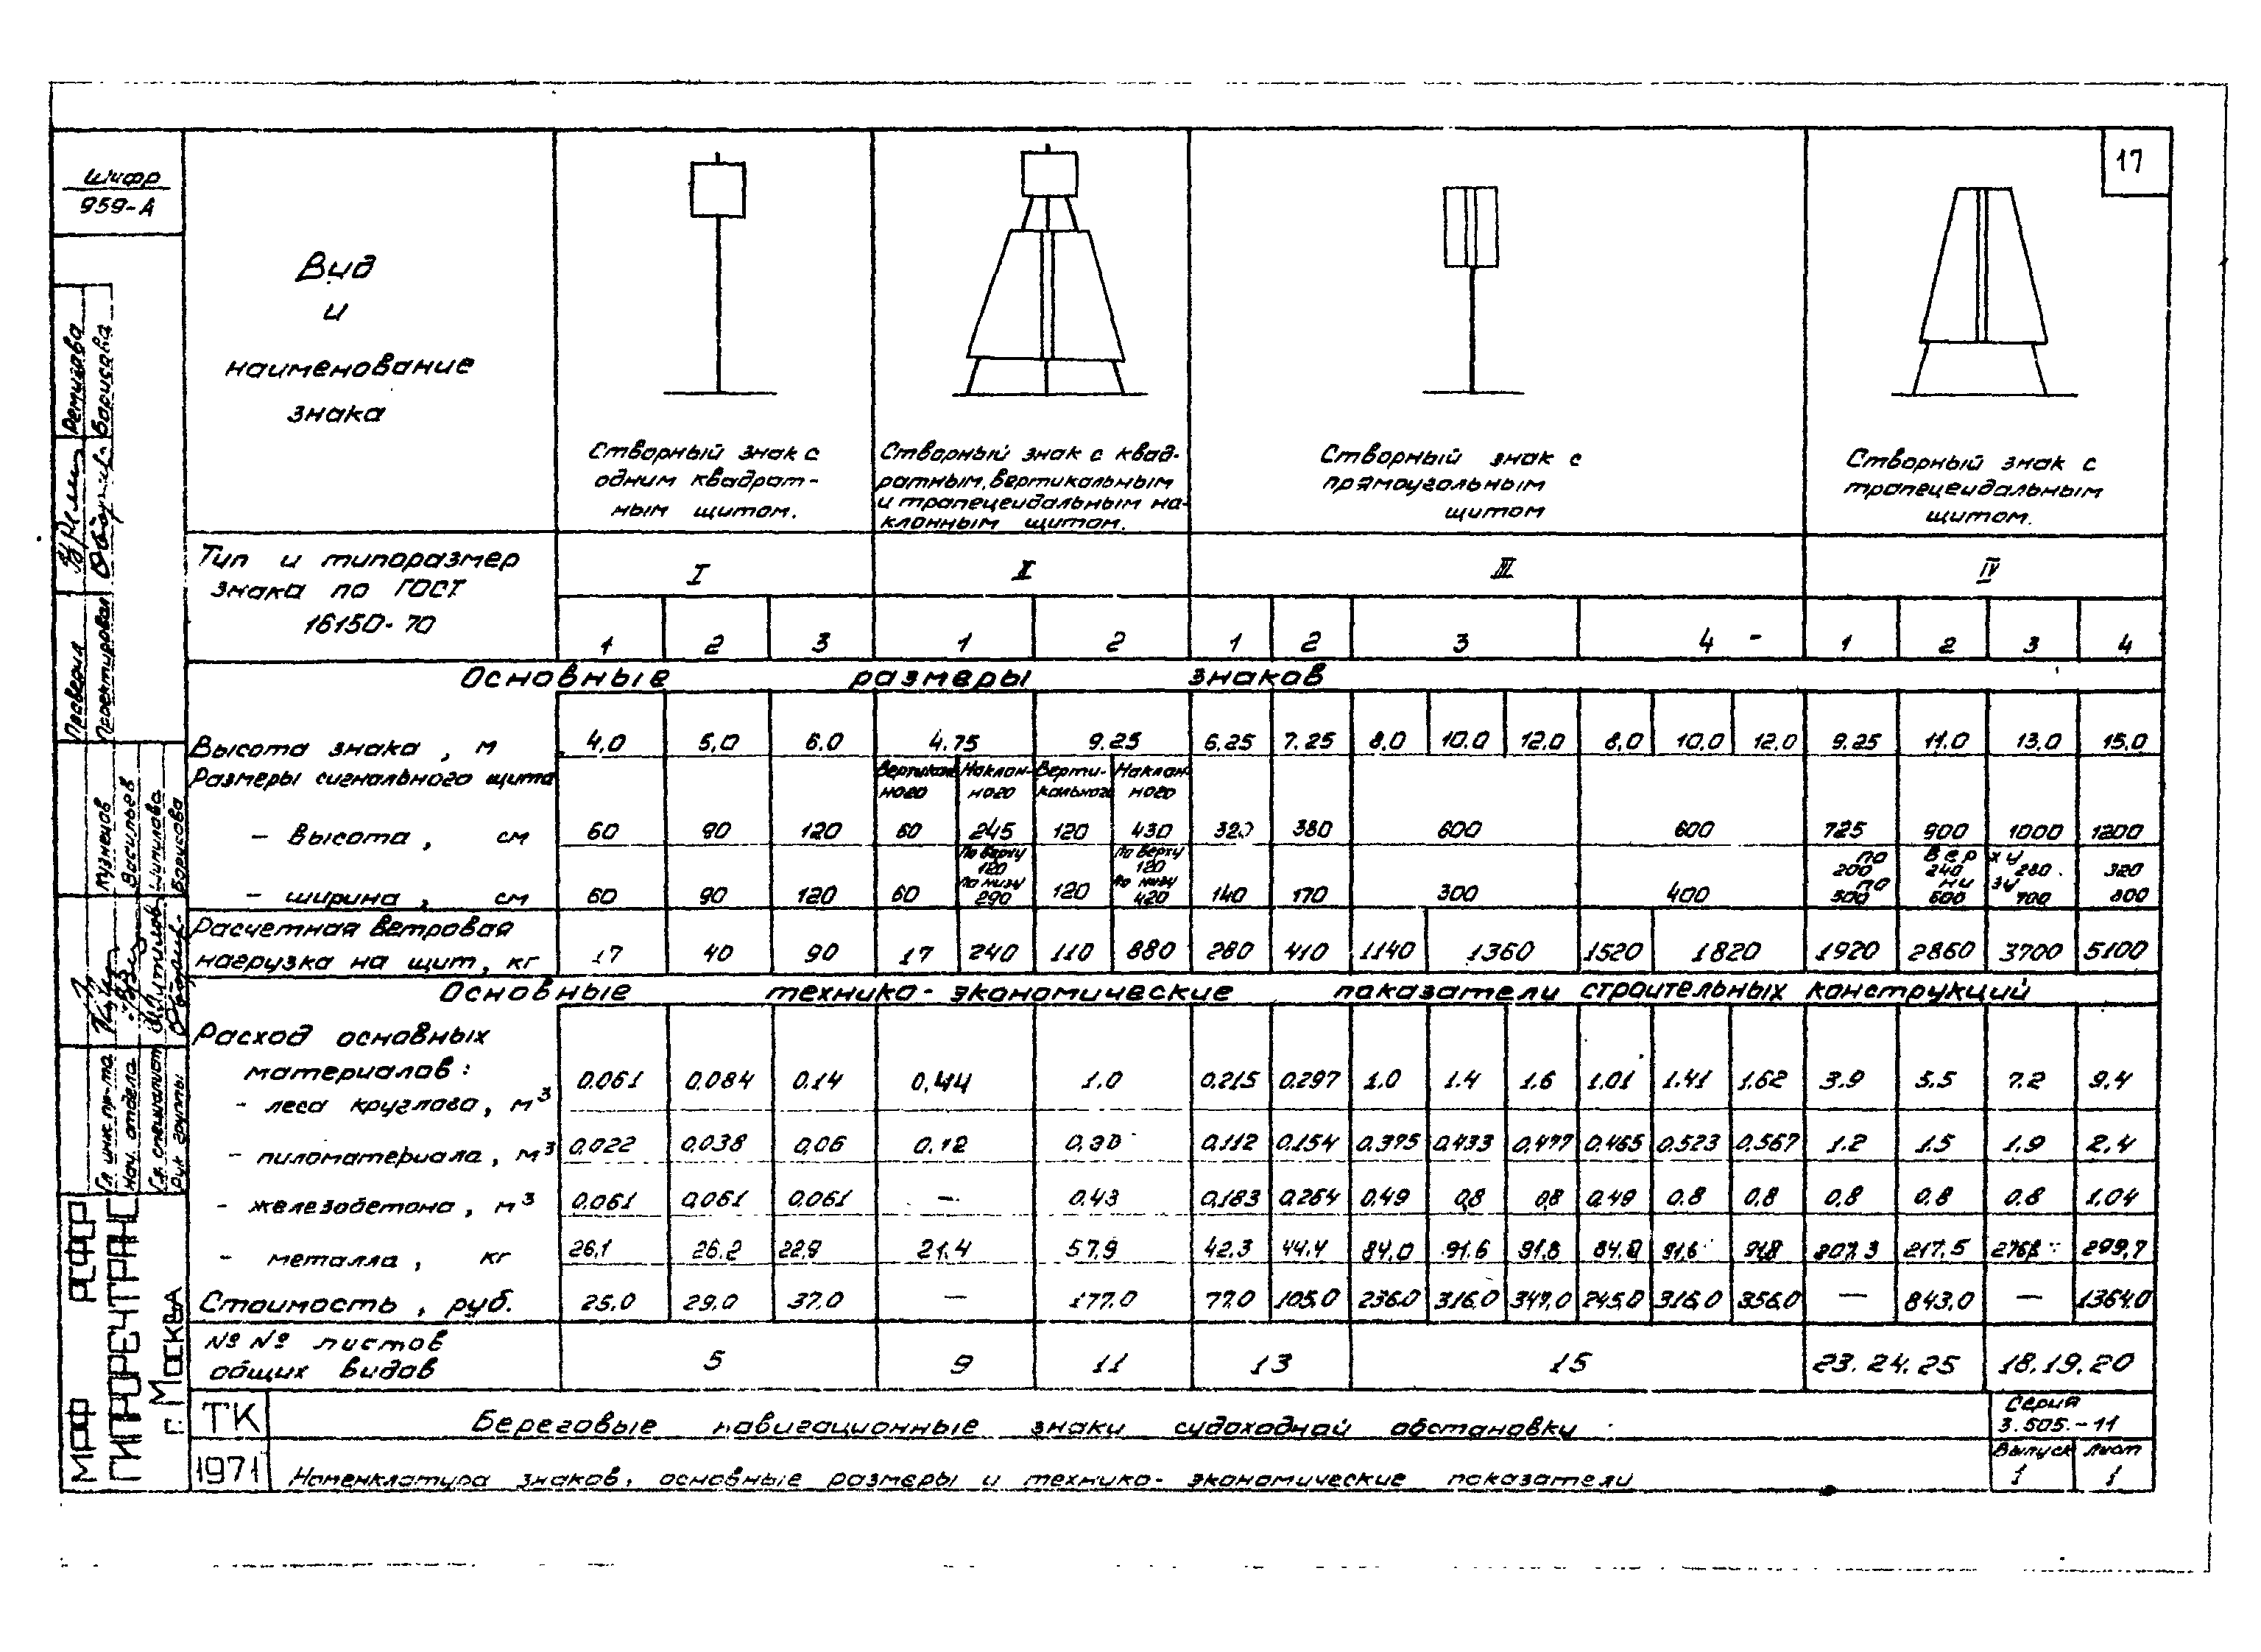 17
Шифр
959-А
Вид
и
наименование
знака
Створный знак с
одним квадрат-
ным щитом.
Створный знак с квад-
ратным, вертикальным
и трапецеидальным на-
клонным щитом.
Створный знак с
прямоугольным
щитом
Створный знак с
трапецеидальным
щитом.
Тип и типоразмер
знака по ГОСТ
16150-70
I II III IV
1 2 3 1 2 1 2 3 4 - 1 2 3 4
Основные размеры знаков
Высота знака, м 4,0 5,0 6.0 4.75 9.25 6.25 7.25 8,0 10.0 12.0 8,0 10,0 12,0 9.25 11.0 13,0 15,0
Размеры сигнального щита
Наклон-
ного
Верти-
кального
Наклон-
ного
- высота, см 60 90 120 60 245 120 430 320 380 600 600 725 900 1000 1200
- ширина, см 60 90 120 60 по верху 120 по низу 290 120 по верху 120 по низу 420 140 170 300 400
по верху
200 240 280 320
по низу
500 600 700 800
Расчетная ветровая
нагрузка на щит, кг 17 40 90 17 240 110 880 280 410 1140 1360 1520 1820 1920 2860 3700 5100
Основные технико-экономические показатели строительных конструкций
Расход основных
материалов:
- леса круглого, м³ 0.061 0.084 0.14 0,44 1.0 0.215 0.297 1.0 1.4 1.6 1.01 1.41 1.62 3.9 5.5 7.2 9.4
- пиломатериала, м³ 0,022 0,038 0,06 0.12 0.112 0.154 0.375 0.433 0,477 0.465 0.523 0.567 1.2 1.5 1.9 2.4
- железобетона, м³ 0.061 0,061 0.061 — 0.43 0.183 0.264 0.49 0,8 0,8 0.49 0.8 0.8 0,8 0.8 0.8 1.04
- металла, кг 26,1 26.2 22,9 21.4 57.9 42.3 44.4 84,0 91.6 91,8 84.0 91,6 91,8 207.3 217,5 299,7
Стоимость, руб. 25,0 29.0 37.0 — 177.0 77.0 105.0 236.0 316.0 347,0 245.0 316.0 356.0 — 843.0 — 1364.0
№ № листов
общих видов 5 9 11 13 15 23. 24. 25 18. 19. 20
ТК
1971
Береговые навигационные знаки судоходной обстановки
Номенклатура знаков, основные размеры и технико-экономические показатели
Серия
3.505.-11
Выпуск Лист
1 1
Ремизова
Борисова
Проверил
Проектировал
Кузнецов
Васильев
Шипилова
Борисова
Гл инж пр-та
Нач. отдела
Гл. специалист
Рук группы
МРФ РСФСР
ГИПРОРЕЧТРАНС
г. Москва